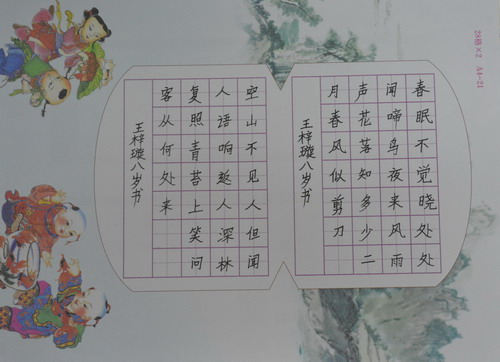 春眠不觉晓处处
闻啼鸟夜来风雨
声花落知多少二
月春风似剪刀
王梓璇八岁书
空山不见人但闻
人语响人深林
复照青苔上笑问
客从何处来
王梓璇八岁书
28格×2 A4-21